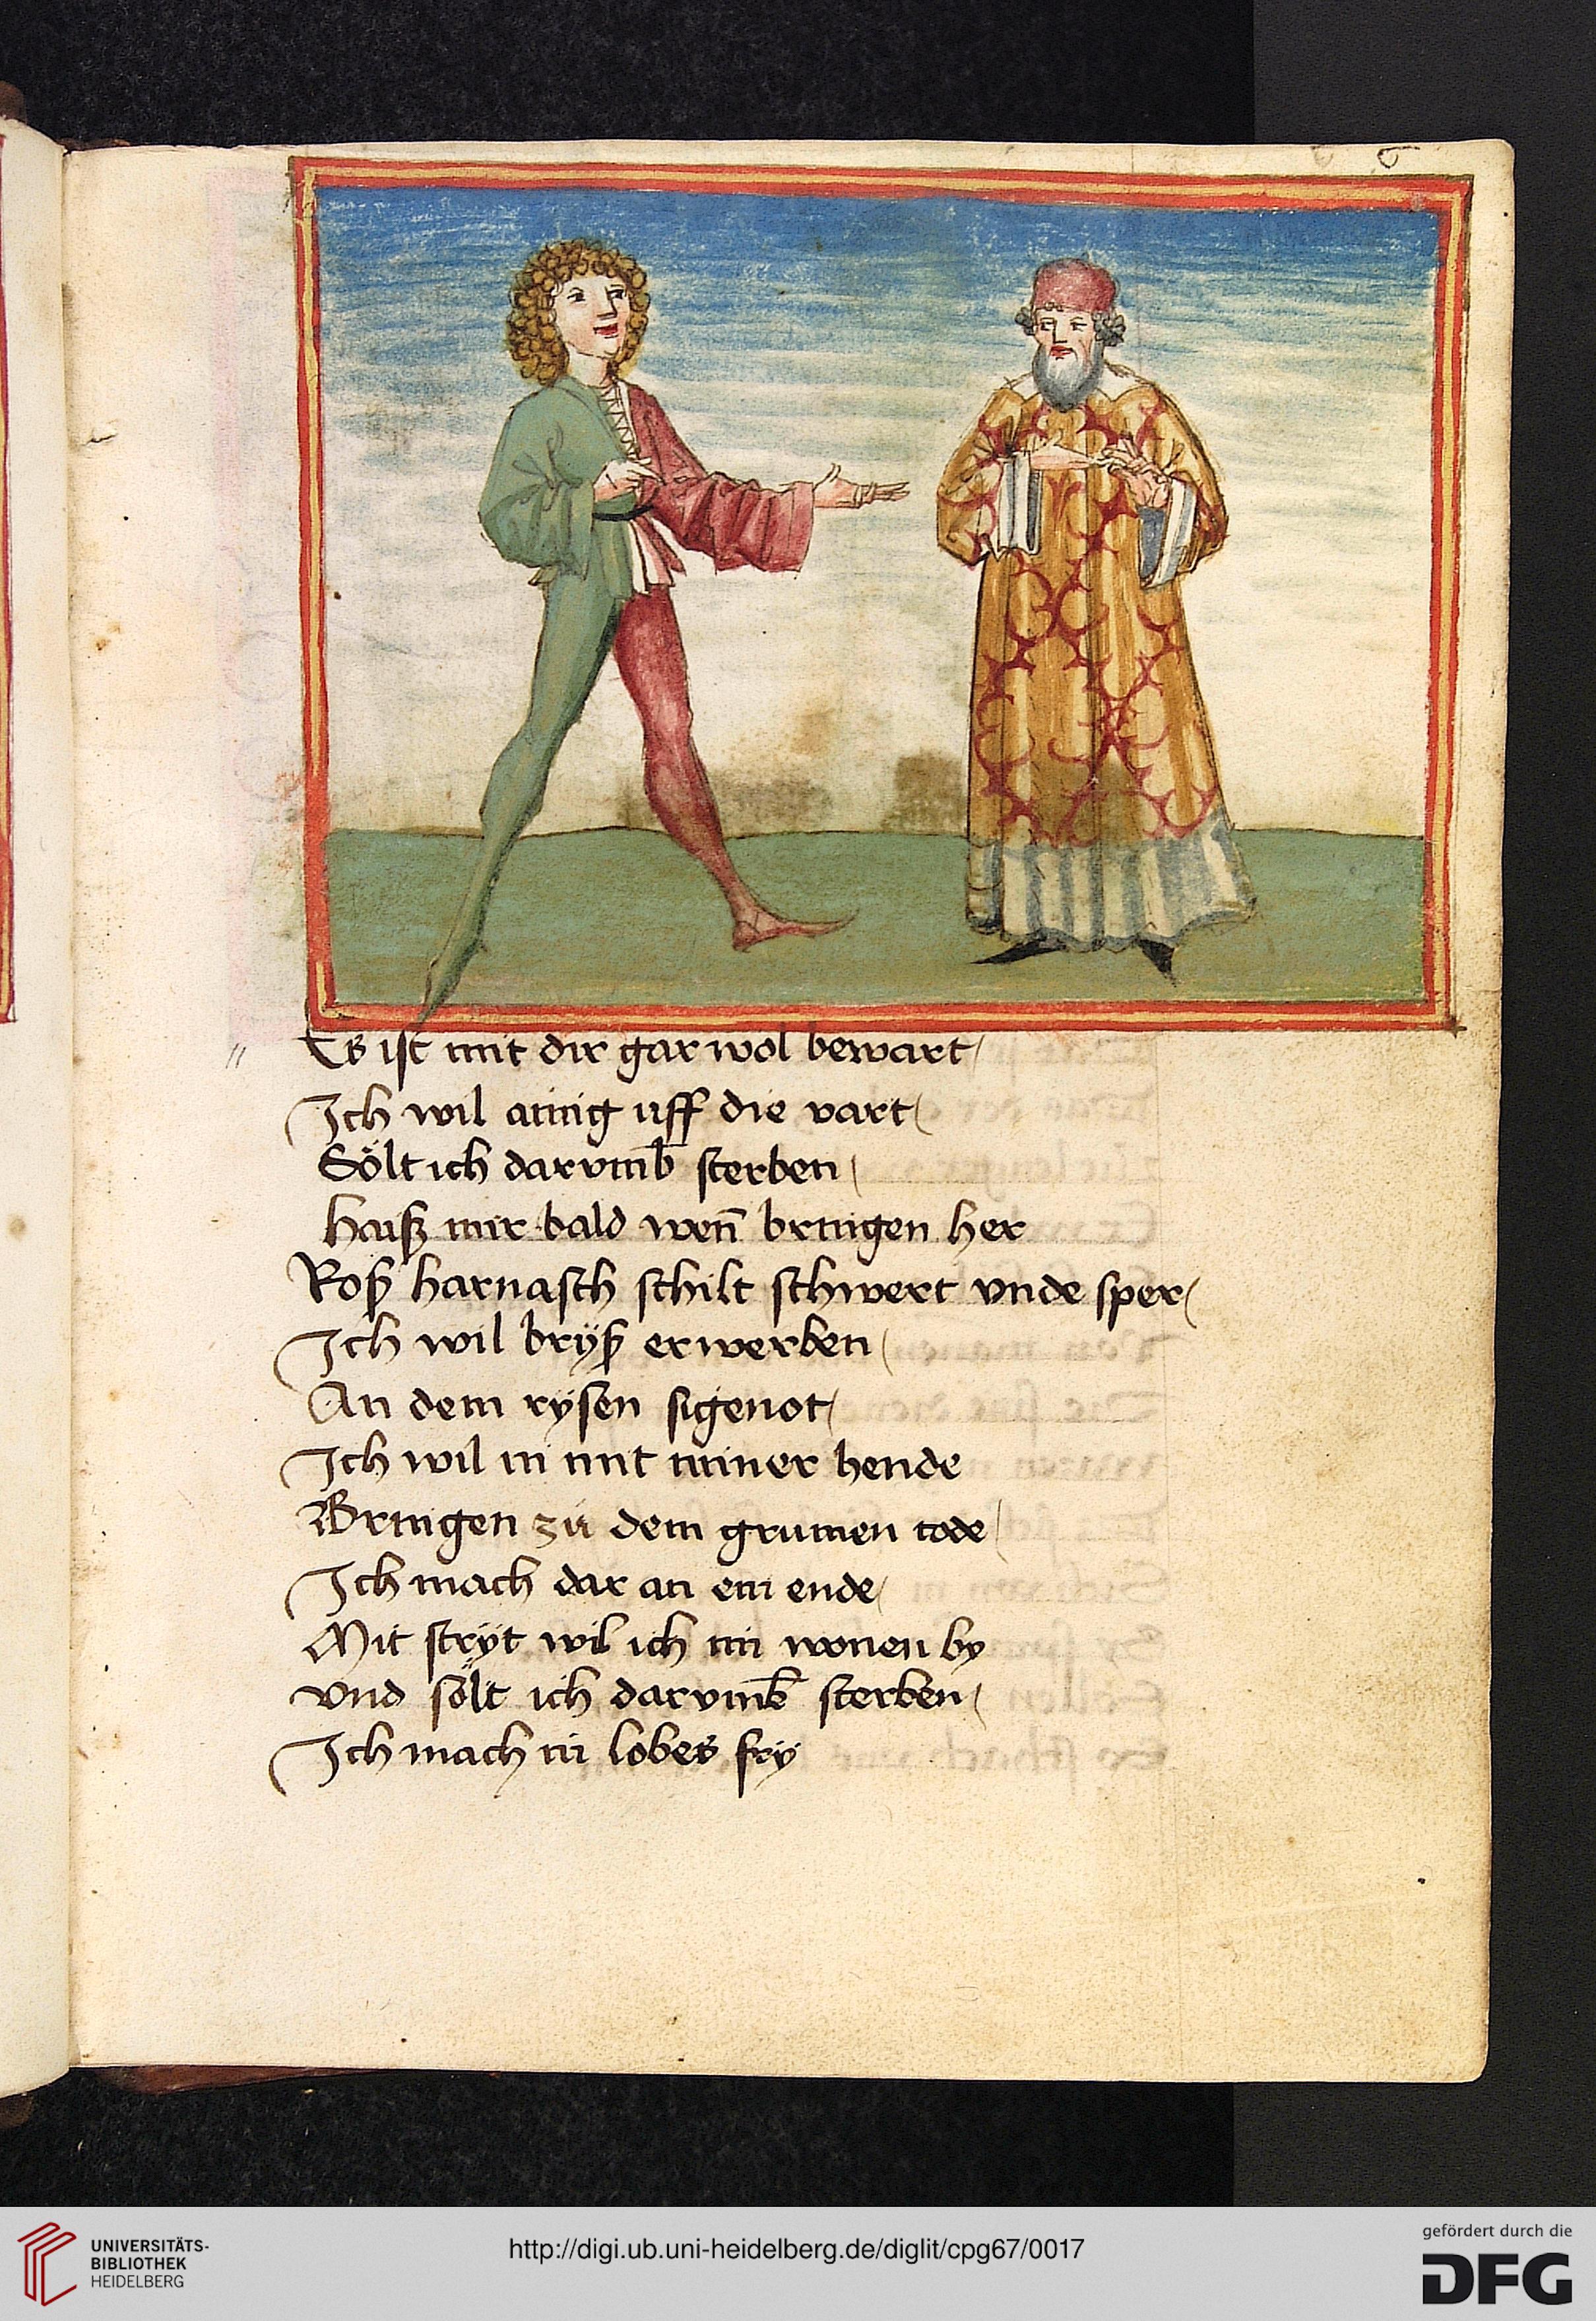 6
Es ist mit dir gar wol bewart
Ich wil ainig uff die vart
Sölt ich darvmb̄ sterben
Haiß mir bald wen̄ bringen her
Roß harnasch schilt schwert vnde sper
Ich wil brÿß erwerben
An dem rÿsen sigenot
Ich wil in mit miner hende
Bringen zů dem grimen tode
Ich mach dar an ein ende
Mit strÿt wil ich im wonen by
Vnd sölt ich darvmb̄ sterben
Ich mach in lobes frÿ
UNIVERSITÄTS-
BIBLIOTHEK
HEIDELBERG
http://digi.ub.uni-heidelberg.de/diglit/cpg67/0017
gefördert durch die
DFG